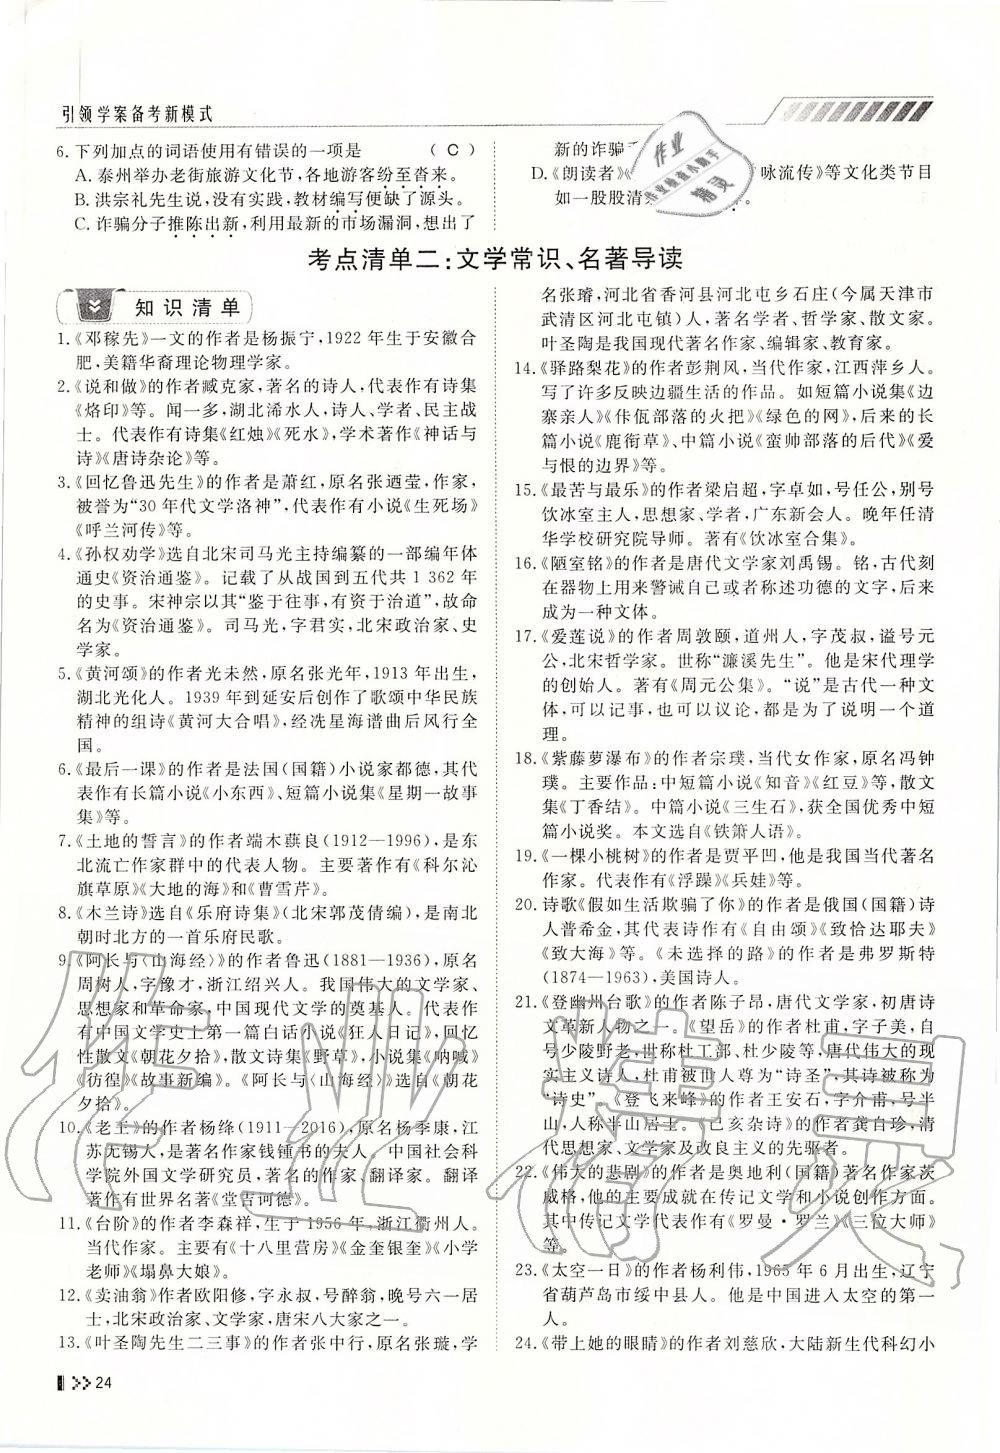 引领学案备考新模式
6. 下列加点的词语使用有错误的一项是 （ C ）
A. 泰州举办老街旅游文化节，各地游客纷至沓来。
B. 洪宗礼先生说，没有实践，教材编写便缺了源头。
C. 诈骗分子推陈出新，利用最新的市场漏洞，想出了
新的诈骗
D.《朗读者》《 咏流传》等文化类节目
如一股股清 。
考点清单二：文学常识、名著导读
知识清单
1.《邓稼先》一文的作者是杨振宁，1922 年生于安徽合
肥，美籍华裔理论物理学家。
2.《说和做》的作者臧克家，著名的诗人，代表作有诗集
《烙印》等。闻一多，湖北浠水人，诗人、学者、民主战
士。代表作有诗集《红烛》《死水》，学术著作《神话与
诗》《唐诗杂论》等。
3.《回忆鲁迅先生》的作者是萧红，原名张迺莹，作家，
被誉为“30 年代文学洛神”，代表作有小说《生死场》
《呼兰河传》等。
4.《孙权劝学》选自北宋司马光主持编纂的一部编年体
通史《资治通鉴》。记载了从战国到五代共 1 362 年
的史事。宋神宗以其“鉴于往事，有资于治道”，故命
名为《资治通鉴》。司马光，字君实，北宋政治家、史
学家。
5.《黄河颂》的作者光未然，原名张光年，1913 年出生，
湖北光化人。1939 年到延安后创作了歌颂中华民族
精神的组诗《黄河大合唱》，经冼星海谱曲后风行全
国。
6.《最后一课》的作者是法国（国籍）小说家都德，其代
表作有长篇小说《小东西》、短篇小说集《星期一故事
集》等。
7.《土地的誓言》的作者端木蕻良（1912—1996），是东
北流亡作家群中的代表人物。主要著作有《科尔沁
旗草原》《大地的海》和《曹雪芹》。
8.《木兰诗》选自《乐府诗集》（北宋郭茂倩编），是南北
朝时北方的一首乐府民歌。
9.《阿长与〈山海经〉》的作者鲁迅（1881—1936），原名
周树人，字豫才，浙江绍兴人。我国伟大的文学家、
思想家和革命家，中国现代文学的奠基人。代表作
有中国文学史上第一篇白话小说《狂人日记》，回忆
性散文《朝花夕拾》，散文诗集《野草》，小说集《呐喊》
《彷徨》《故事新编》。《阿长与〈山海经〉》选自《朝花
夕拾》。
10.《老王》的作者杨绛（1911—2016），原名杨季康，江
苏无锡人，是著名作家钱锺书的夫人，中国社会科
学院外国文学研究员，著名的作家、翻译家。翻译
著作有世界名著《堂吉诃德》。
11.《台阶》的作者李森祥，生于 1956 年，浙江衢州人。
当代作家。主要有《十八里营房》《金奎银奎》《小学
老师》《塌鼻大娘》。
12.《卖油翁》作者欧阳修，字永叔，号醉翁，晚号六一居
士，北宋政治家、文学家，唐宋八大家之一。
13.《叶圣陶先生二三事》的作者张中行，原名张璇，学
名张璿，河北省香河县河北屯乡石庄（今属天津市
武清区河北屯镇）人，著名学者、哲学家、散文家。
叶圣陶是我国现代著名作家、编辑家、教育家。
14.《驿路梨花》的作者彭荆风，当代作家，江西萍乡人。
写了许多反映边疆生活的作品。如短篇小说集《边
寨亲人》《佧佤部落的火把》《绿色的网》，后来的长
篇小说《鹿衔草》、中篇小说《蛮帅部落的后代》《爱
与恨的边界》等。
15.《最苦与最乐》的作者梁启超，字卓如，号任公，别号
饮冰室主人，思想家、学者，广东新会人。晚年任清
华学校研究院导师。著有《饮冰室合集》。
16.《陋室铭》的作者是唐代文学家刘禹锡。铭，古代刻
在器物上用来警诫自己或者称述功德的文字，后来
成为一种文体。
17.《爱莲说》的作者周敦颐，道州人，字茂叔，谥号元
公，北宋哲学家。世称“濂溪先生”。他是宋代理学
的创始人。著有《周元公集》。“说”是古代一种文
体，可以记事，也可以议论，都是为了说明一个道
理。
18.《紫藤萝瀑布》的作者宗璞，当代女作家，原名冯钟
璞。主要作品：中短篇小说《知音》《红豆》等，散文
集《丁香结》。中篇小说《三生石》，获全国优秀中短
篇小说奖。本文选自《铁箫人语》。
19.《一棵小桃树》的作者是贾平凹，他是我国当代著名
作家。代表作有《浮躁》《兵娃》等。
20. 诗歌《假如生活欺骗了你》的作者是俄国（国籍）诗
人普希金，其代表诗作有《自由颂》《致恰达耶夫》
《致大海》等。《未选择的路》的作者是弗罗斯特
（1874—1963），美国诗人。
21.《登幽州台歌》的作者陈子昂，唐代文学家，初唐诗
文革新人物之一。《望岳》的作者杜甫，字子美，自
号少陵野老，世称杜工部、杜少陵等，唐代伟大的现
实主义诗人，杜甫被世人尊为“诗圣”，其诗被称为
“诗史”。《登飞来峰》的作者王安石，字介甫，号半
山，人称半山居士。《己亥杂诗》的作者龚自珍，清
代思想家、文学家及改良主义的先驱者。
22.《伟大的悲剧》的作者是奥地利（国籍）著名作家茨
威格，他的主要成就在传记文学和小说创作方面。
其中传记文学代表作有《罗曼·罗兰》《三位大师》
等。
23.《太空一日》的作者杨利伟，1965 年 6 月出生，辽宁
省葫芦岛市绥中县人。他是中国进入太空的第一
人。
24.《带上她的眼睛》的作者刘慈欣，大陆新生代科幻小
24
作业
作业检查小助手
精灵
作业精灵